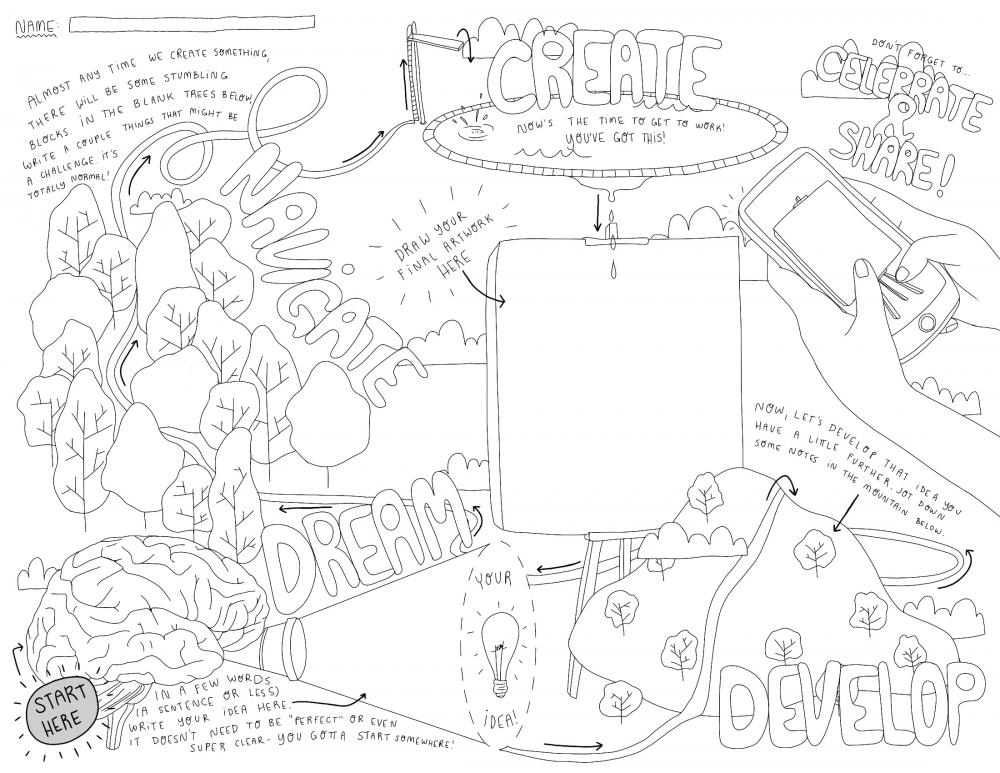 NAME:
ALMOST ANY TIME WE CREATE SOMETHING,
THERE WILL BE SOME STUMBLING
BLOCKS. IN THE BLANK TREES BELOW,
WRITE A COUPLE THINGS THAT MIGHT BE
A CHALLENGE. IT'S
TOTALLY NORMAL!
NAVIGATE
CREATE
NOW'S THE TIME TO GET TO WORK!
YOU'VE GOT THIS!
DON'T FORGET TO...
CELEBRATE
&
SHARE!
DRAW YOUR
FINAL ARTWORK
HERE
NOW, LET'S DEVELOP THAT IDEA YOU
HAVE A LITTLE FURTHER. JOT DOWN
SOME NOTES IN THE MOUNTAIN BELOW.
DREAM
YOUR
IDEA!
START
HERE
IN A FEW WORDS
(A SENTENCE OR LESS)
WRITE YOUR IDEA HERE.
IT DOESN'T NEED TO BE "PERFECT" OR EVEN
SUPER CLEAR - YOU GOTTA START SOMEWHERE!
DEVELOP